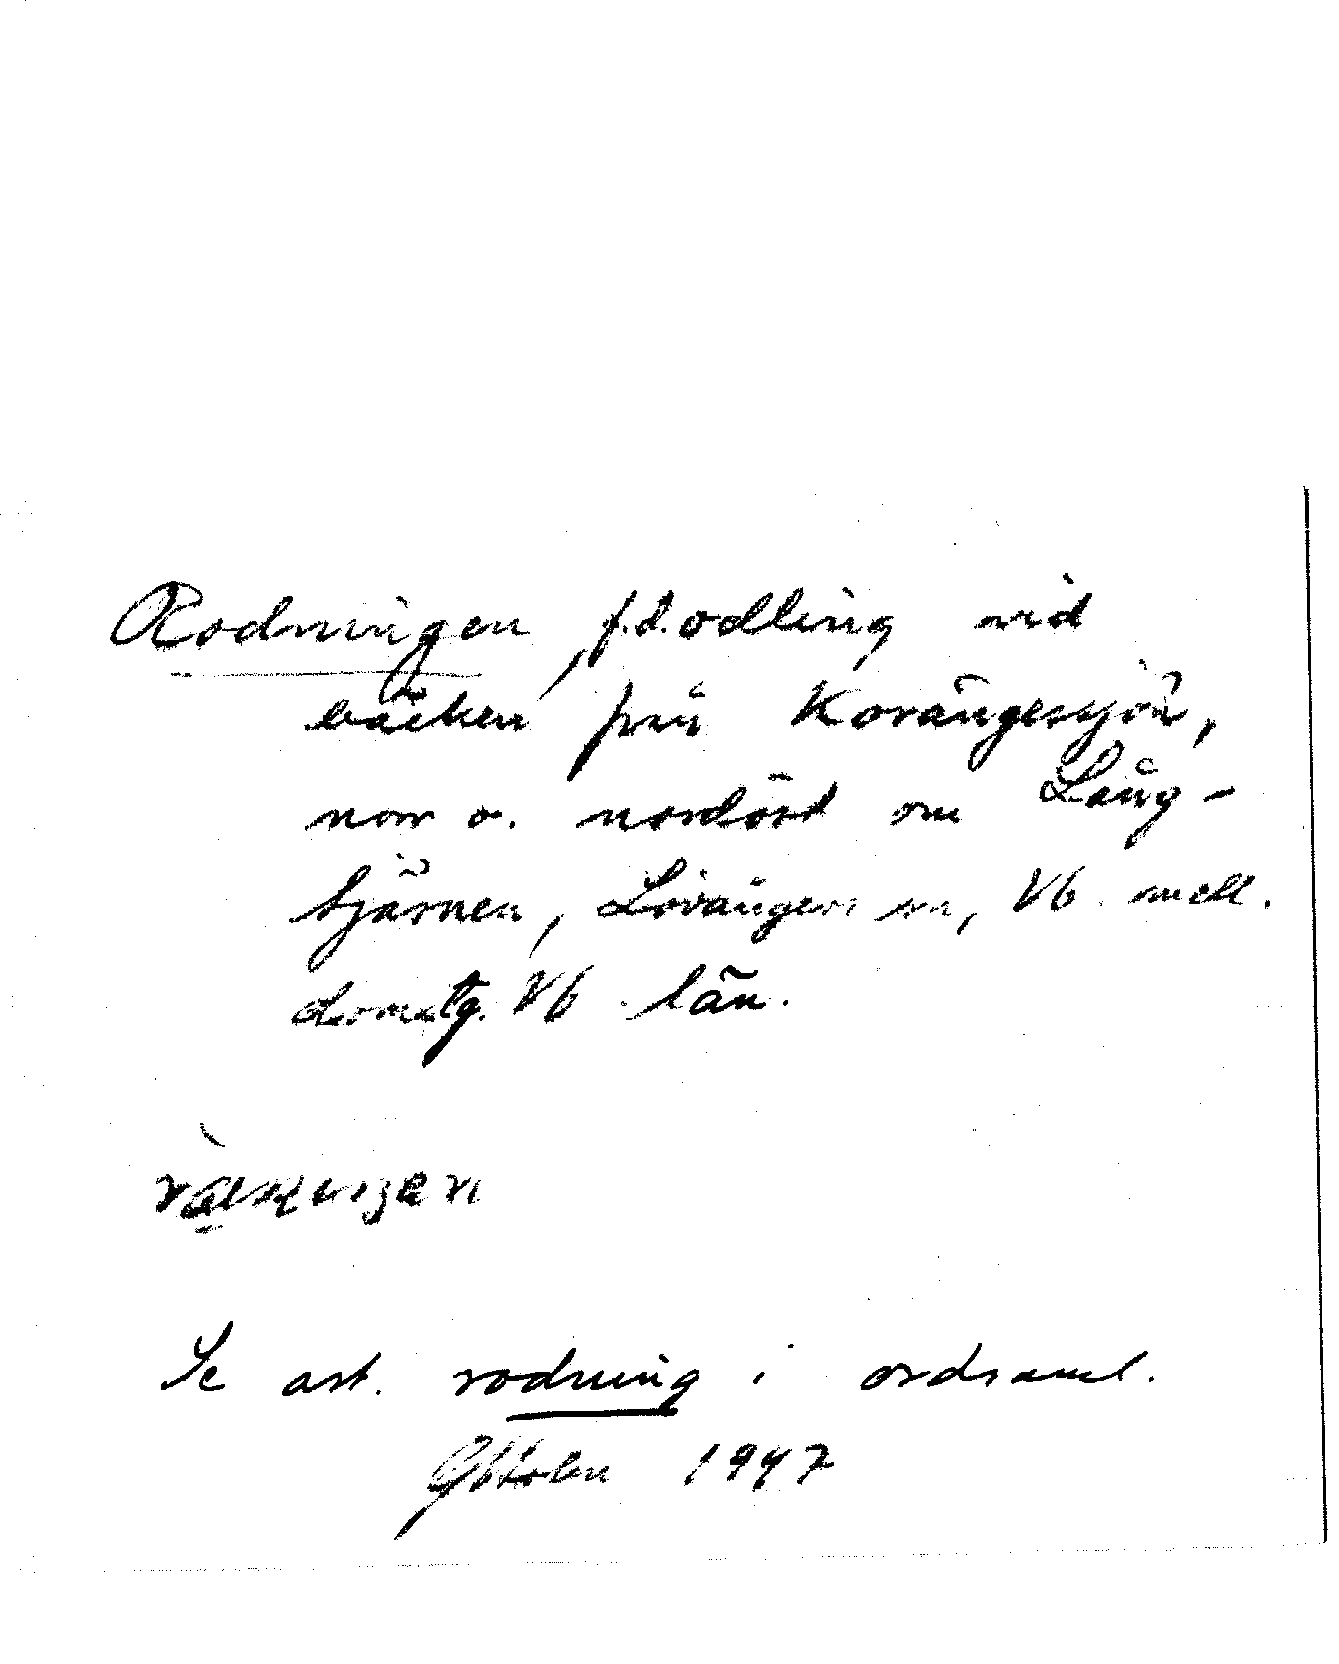 Rodningen, f.d. odling vid
bäcken från Korängessjön,
norr o. nordöst om Lång-
tjärnen, Lövångers sn, Vb. mell.
domstg. Vb. län.
Se art. rodning i ordsaml.
Oktober 1947